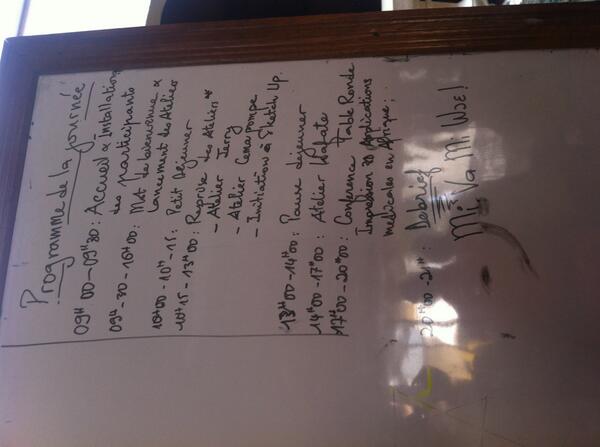 Programme de la journée
09H00-09H30: Accueil & Installation
des participants
09H-30-10H00: Mot de bienvenue &
Lancement des Atelier
10H00-10H-15: Petit déjeuner
10H15-13H00: Reprise des Ateliers
- Atelier Jerry
- Atelier
- Initiation à Sketch Up.
13H00-14H00: Pause déjeuner
14H00-17H00: Atelier
17H00-20H00: Conférence Table Ronde
Impression 3D Applications
médicales en Afrique;
20H00-21H: Debrief
Mi Va Mi Woe!